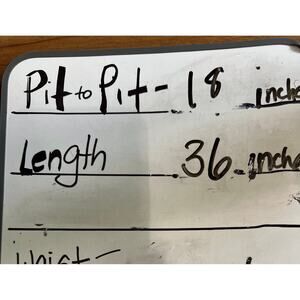 Pit to Pit - 18 inches
Length 36 inches
Waist -